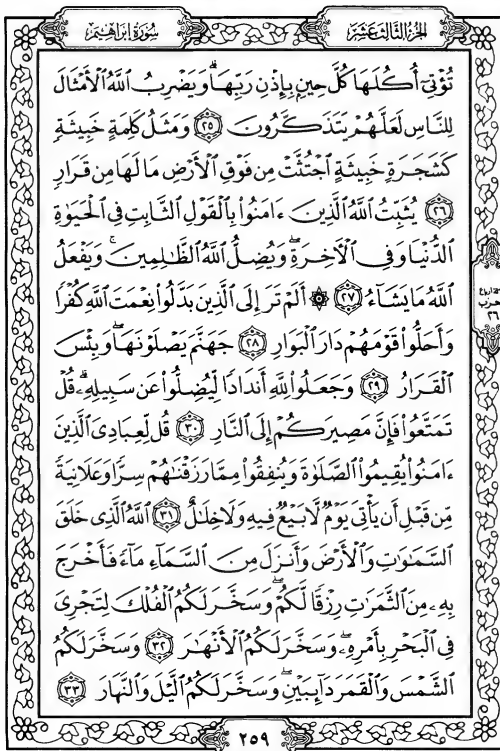 سُورَةُ إِبْرَاهِيم
الجُزْءُ الثَّالِثَ عَشَرَ
تُؤْتِىٓ أُكُلَهَا كُلَّ حِينٍۭ بِإِذْنِ رَبِّهَاۗ وَيَضْرِبُ ٱللَّهُ ٱلْأَمْثَالَ
لِلنَّاسِ لَعَلَّهُمْ يَتَذَكَّرُونَ ٢٥ وَمَثَلُ كَلِمَةٍ خَبِيثَةٍ
كَشَجَرَةٍ خَبِيثَةٍ ٱجْتُثَّتْ مِن فَوْقِ ٱلْأَرْضِ مَا لَهَا مِن قَرَارٍ
٢٦ يُثَبِّتُ ٱللَّهُ ٱلَّذِينَ ءَامَنُوا۟ بِٱلْقَوْلِ ٱلثَّابِتِ فِى ٱلْحَيَوٰةِ
ٱلدُّنْيَا وَفِى ٱلْءَاخِرَةِۖ وَيُضِلُّ ٱللَّهُ ٱلظَّٰلِمِينَۚ وَيَفْعَلُ
ٱللَّهُ مَا يَشَآءُ ٢٧ ۞ أَلَمْ تَرَ إِلَى ٱلَّذِينَ بَدَّلُوا۟ نِعْمَتَ ٱللَّهِ كُفْرًا
وَأَحَلُّوا۟ قَوْمَهُمْ دَارَ ٱلْبَوَارِ ٢٨ جَهَنَّمَ يَصْلَوْنَهَاۖ وَبِئْسَ
ٱلْقَرَارُ ٢٩ وَجَعَلُوا۟ لِلَّهِ أَندَادًا لِّيُضِلُّوا۟ عَن سَبِيلِهِۦۗ قُلْ
تَمَتَّعُوا۟ فَإِنَّ مَصِيرَكُمْ إِلَى ٱلنَّارِ ٣٠ قُل لِّعِبَادِىَ ٱلَّذِينَ
ءَامَنُوا۟ يُقِيمُوا۟ ٱلصَّلَوٰةَ وَيُنفِقُوا۟ مِمَّا رَزَقْنَٰهُمْ سِرًّا وَعَلَانِيَةً
مِّن قَبْلِ أَن يَأْتِىَ يَوْمٌ لَّا بَيْعٌ فِيهِ وَلَا خِلَٰلٌ ٣١ ٱللَّهُ ٱلَّذِى خَلَقَ
ٱلسَّمَٰوَٰتِ وَٱلْأَرْضَ وَأَنزَلَ مِنَ ٱلسَّمَآءِ مَآءً فَأَخْرَجَ
بِهِۦ مِنَ ٱلثَّمَرَٰتِ رِزْقًا لَّكُمْۖ وَسَخَّرَ لَكُمُ ٱلْفُلْكَ لِتَجْرِىَ
فِى ٱلْبَحْرِ بِأَمْرِهِۦۖ وَسَخَّرَ لَكُمُ ٱلْأَنْهَٰرَ ٣٢ وَسَخَّرَ لَكُمُ
ٱلشَّمْسَ وَٱلْقَمَرَ دَآئِبَيْنِۖ وَسَخَّرَ لَكُمُ ٱلَّيْلَ وَٱلنَّهَارَ ٣٣
٢٥٩